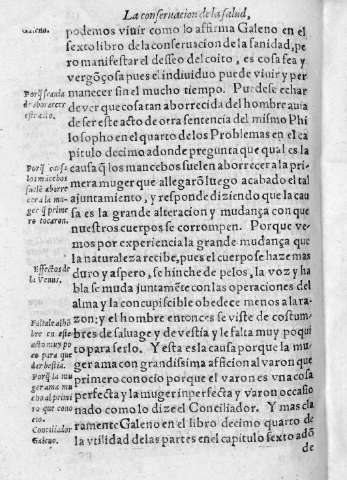 La conseruacion de la salud,
Galeno.
podemos viuir como lo affirma Galeno en el
sexto libro de la conseruacion de la sanidad, pe
ro manifestar el desseo del coito, es cosa fea y
vergõçosa pues el indiuiduo puede viuir y per
manecer sin el mucho tiempo. Puedese echar
de ver que cosa tan aborrecida del hombre auia
de ser este acto de otra sentencia del mismo Phi
losopho en el quarto de los Problemas en el ca
pitulo decimo adonde pregunta que qual es la
causa q̃ los mancebos suelen aborrecer a la pri
mera muger que allegarõ luego acabado el tal
ajuntamiento, y responde diziendo que la cau
sa es la grande alteracion y mudança con que
nuestros cuerpos se corrompen. Porque ve-
mos por experiencia la grande mudança que
la naturaleza recibe, pues el cuerpo se haze mas
duro y aspero, se hinche de pelos, la voz y ha
bla se muda juntamẽte con las operaciones del
alma y la concupiscible obedece menos a la ra-
zon: y el hombre entonces se viste de costum-
bres de saluage y de vestia y le falta muy poqui
to para serlo. Y esta es la causa porque la mu-
ger ama con grandissima afficion al varon que
primero conocio porque el varon es vna cosa
perfecta y la muger inperfecta y varon occasio
nado como lo dize el Conciliador. Y mas cla
ramente Galeno en el libro decimo quarto de
la vtilidad de las partes en el capitulo sexto adõ
de
Porq̃ seauia
de aborrecer
este acto.
Porq̃ causa
los mãcebos
suelẽ aborre
cer a la mu-
ger q̃ prime
ro tocaron.
Effectos de
la Venus.
Faltale al hõ
bre en este
acto muy po
co para que
der bestia.
Porq̃ la mu
ger ama mu
cho al primi
ro que cono
cio.
Conciliador
Galeno.